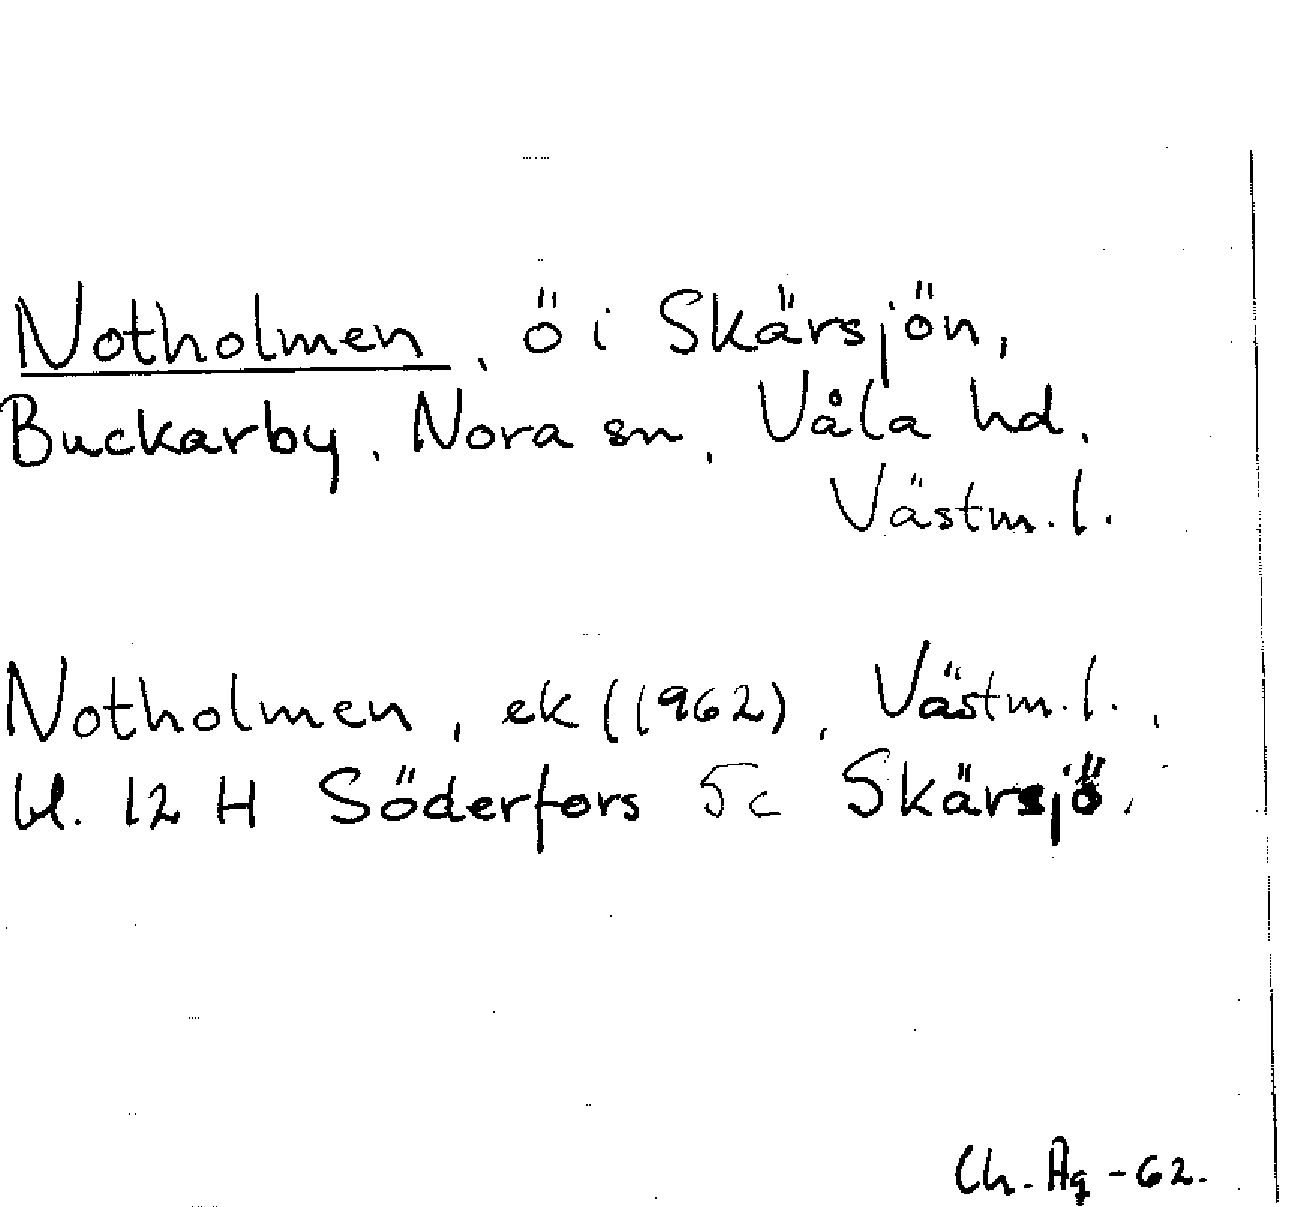 Notholmen, ö i Skärsjön,
Buckarby, Nora sn, Våla hd,
Västm. l.
Notholmen, ek (1962), Västm. l.,
bl. 12 H Söderfors 5c Skärsjö.
Ch. Ag -62.